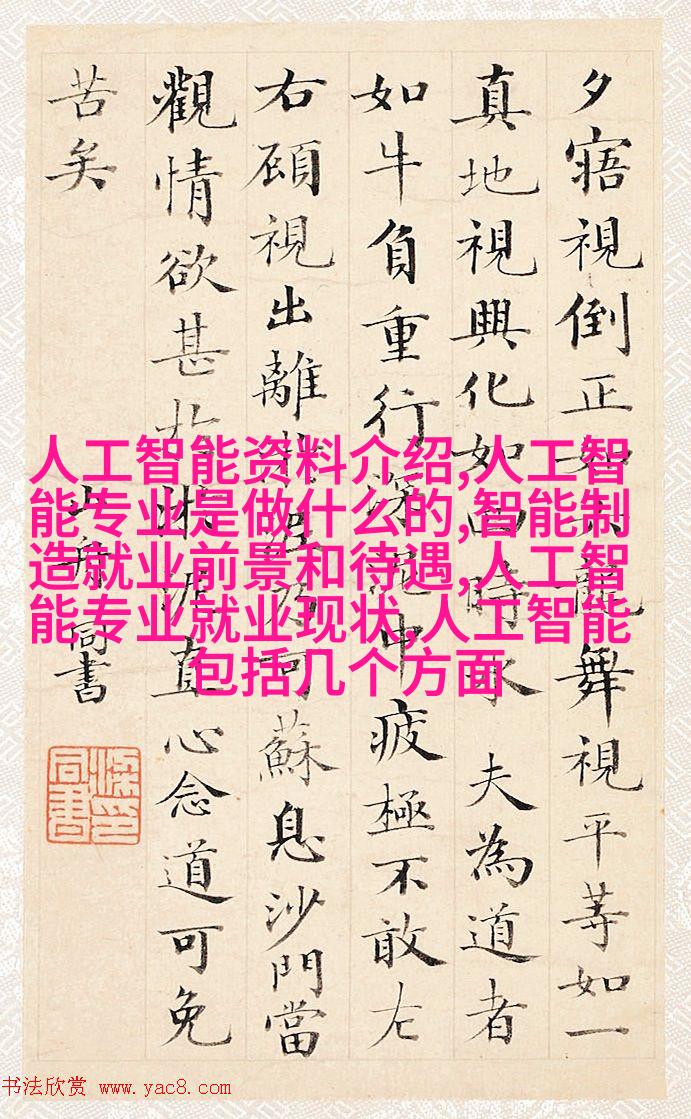 夕寤視倒正如六龍舞視平等如一
真地視興化如四時木 夫為道者
如牛負重行深泥中疲極不敢左
右顧視出離淤泥乃可蘇息沙門當
觀情欲甚於淤泥直心念道可免
苦矣
山舟同書
梁印同書
人工智能资料介绍,人工智
能专业是做什么的,智能制
造就业前景和待遇,人工智
能专业就业现状,人工智能
包括几个方面
书法欣赏 www.yac8.com